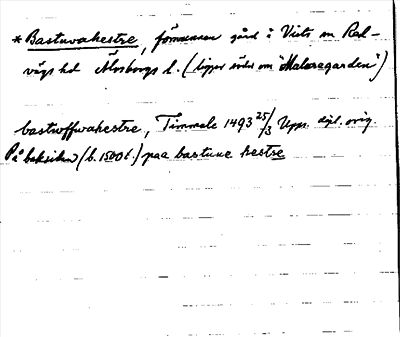 * Bastuvakestre, försvunnen gård i Vists sn Red-
vägs hd Älvsborgs l. (ligger söder om "Malaregarden")
bastwffwakestre, Timmele 1493 25/3 Upps. dipl. orig.
På baksidan (b. 1500 t.) paa bastuue kestre